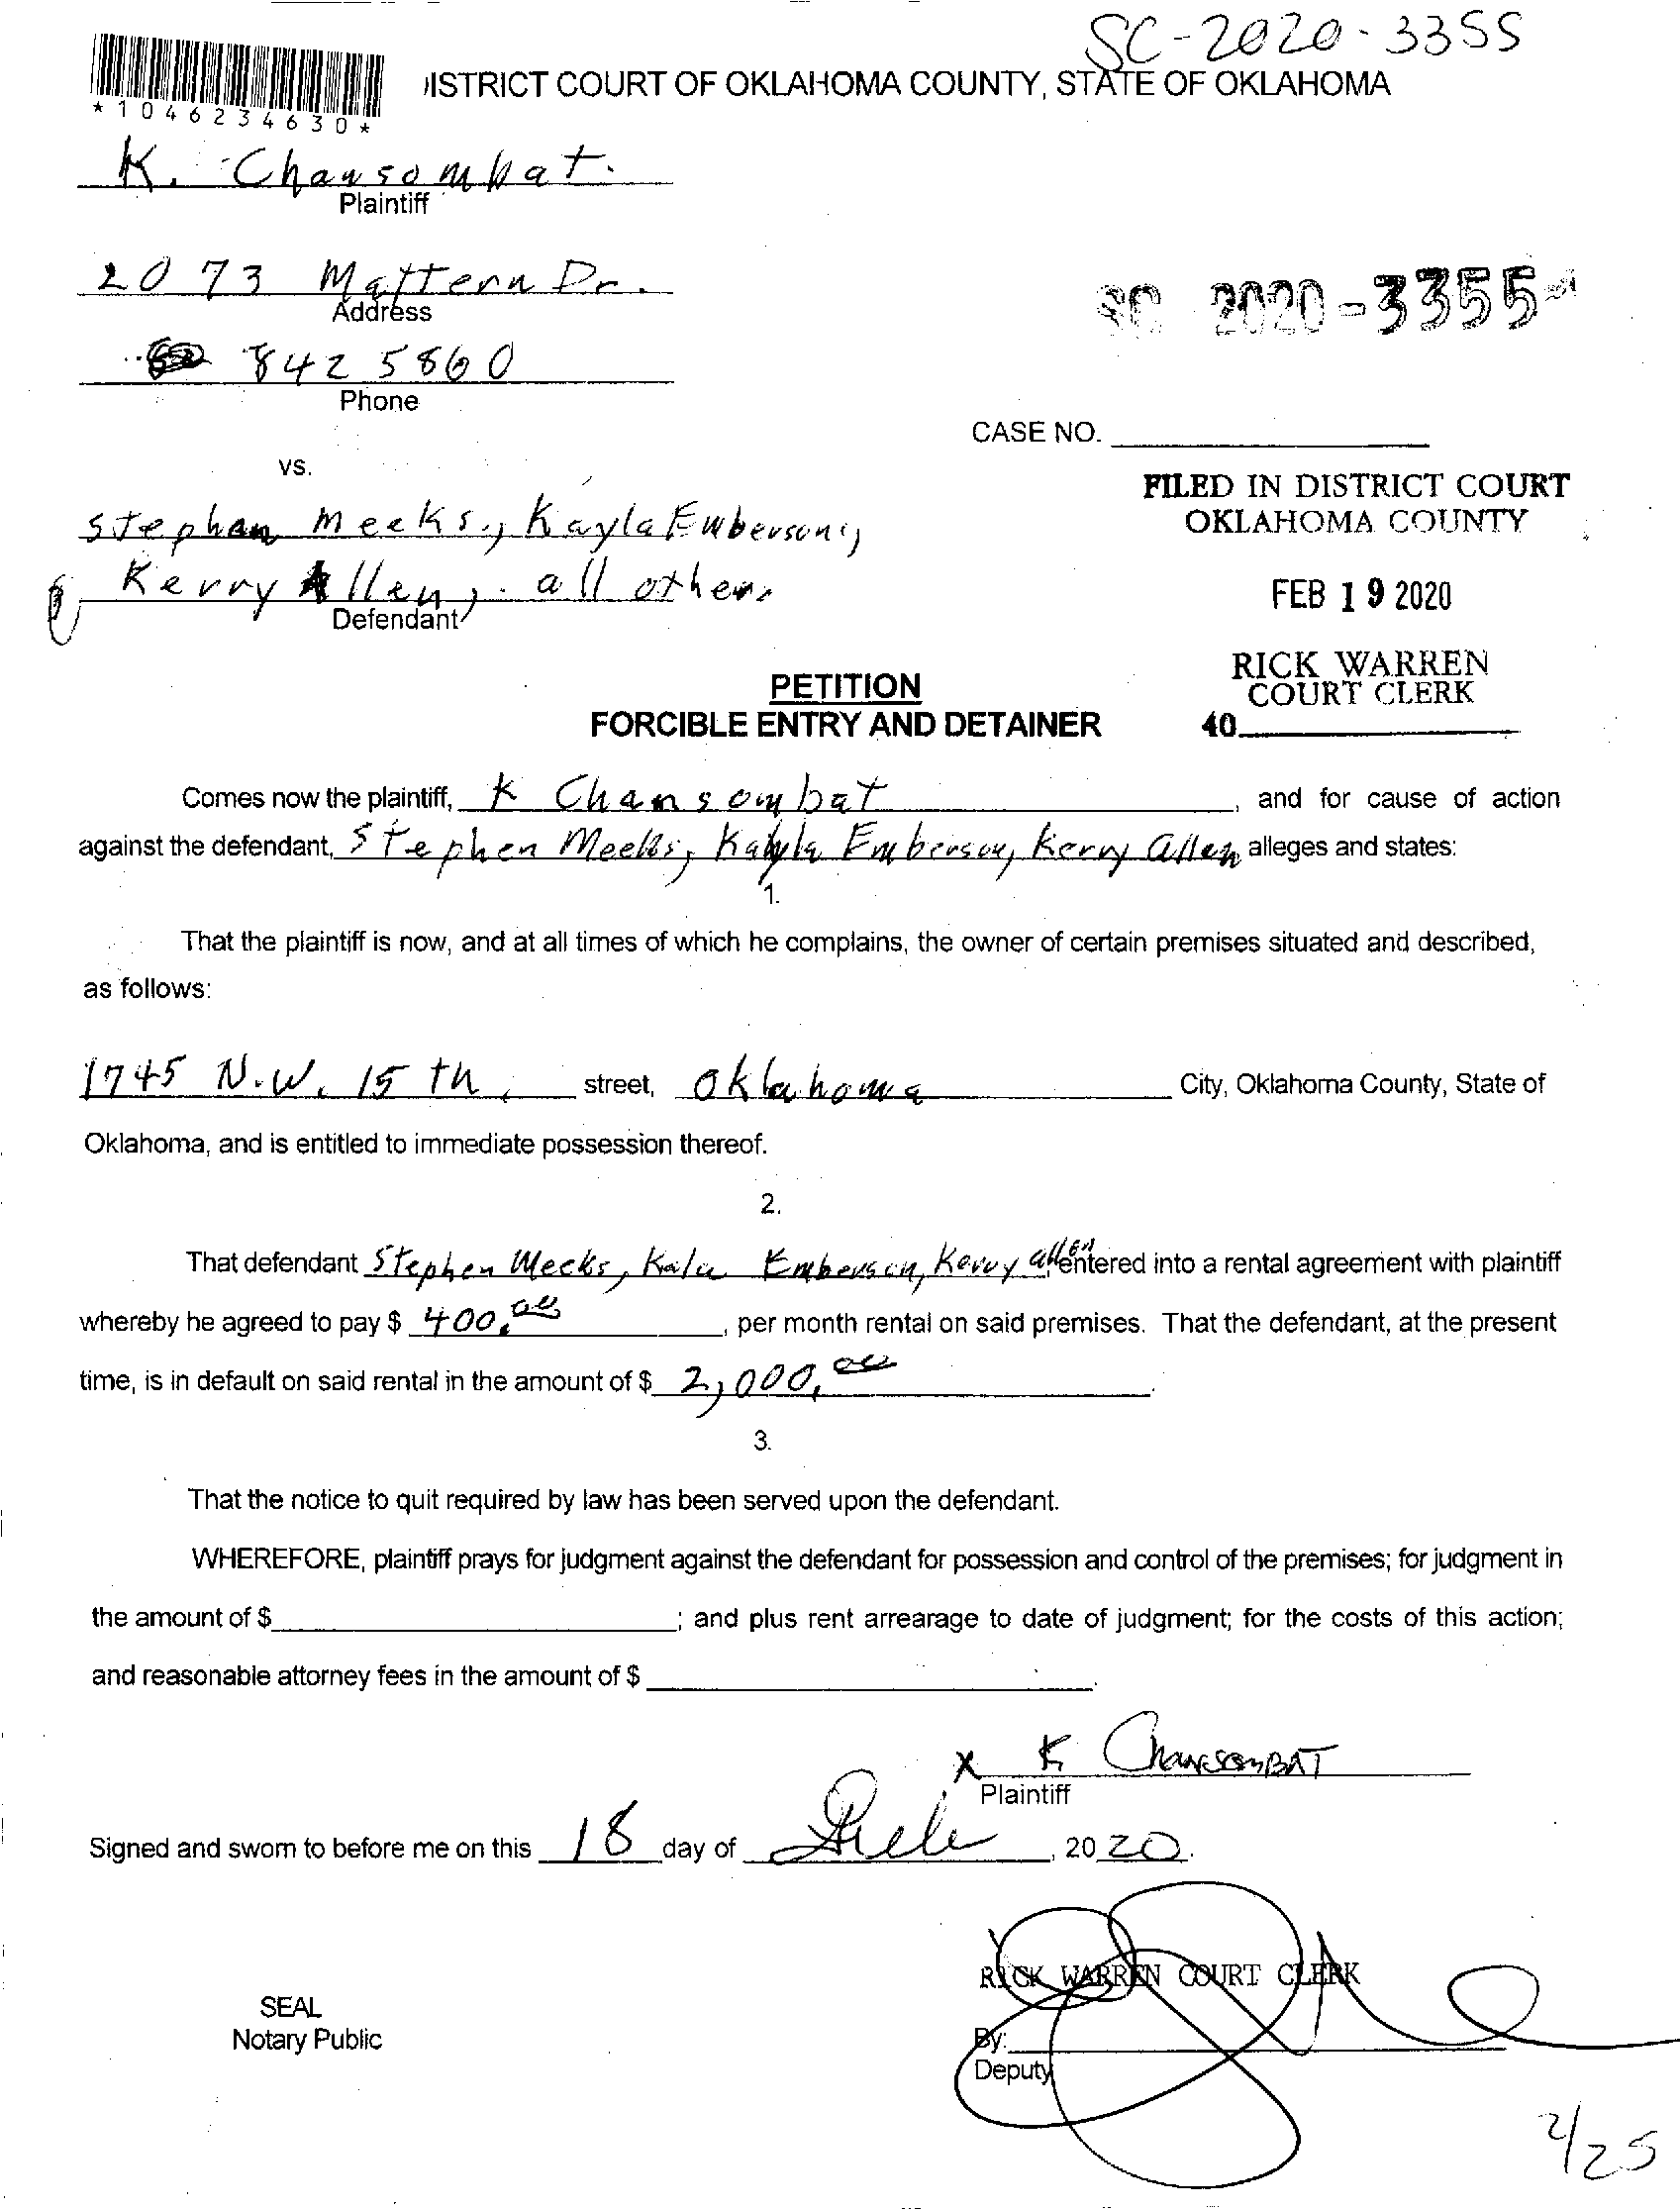 SC-2020-3355
ISTRICT COURT OF OKLAHOMA COUNTY, STATE OF OKLAHOMA
*1046234630*
K. Chansombat.
Plaintiff
2073 Mattern Dr.
Address
SC 2020-3355
842 5860
Phone
CASE NO.
vs.
FILED IN DISTRICT COURT
Stephan Meeks, Kayla Emberson,
OKLAHOMA COUNTY
Kerry Allen, all others
FEB 19 2020
Defendant
RICK WARREN
PETITION
COURT CLERK
FORCIBLE ENTRY AND DETAINER
40
Comes now the plaintiff, K Chansombat, and for cause of action
against the defendant, Stephen Meeks, Kayla Emberson, Kerry Allen alleges and states:
1.
That the plaintiff is now, and at all times of which he complains, the owner of certain premises situated and described,
as follows:
1745 N.W. 15 th, street, Oklahoma City, Oklahoma County, State of
Oklahoma, and is entitled to immediate possession thereof.
2.
That defendant Stephen Meeks, Kala Emberson, Kerry allen entered into a rental agreement with plaintiff
whereby he agreed to pay $ 400.00, per month rental on said premises. That the defendant, at the present
time, is in default on said rental in the amount of $ 2,000.00.
3.
That the notice to quit required by law has been served upon the defendant.
WHEREFORE, plaintiff prays for judgment against the defendant for possession and control of the premises; for judgment in
the amount of $ ; and plus rent arrearage to date of judgment; for the costs of this action;
and reasonable attorney fees in the amount of $ .
X K ChansomBAT
Plaintiff
Signed and sworn to before me on this 18 day of , 2020.
RICK WARREN COURT CLERK
SEAL
Notary Public
By:
Deputy
2/25